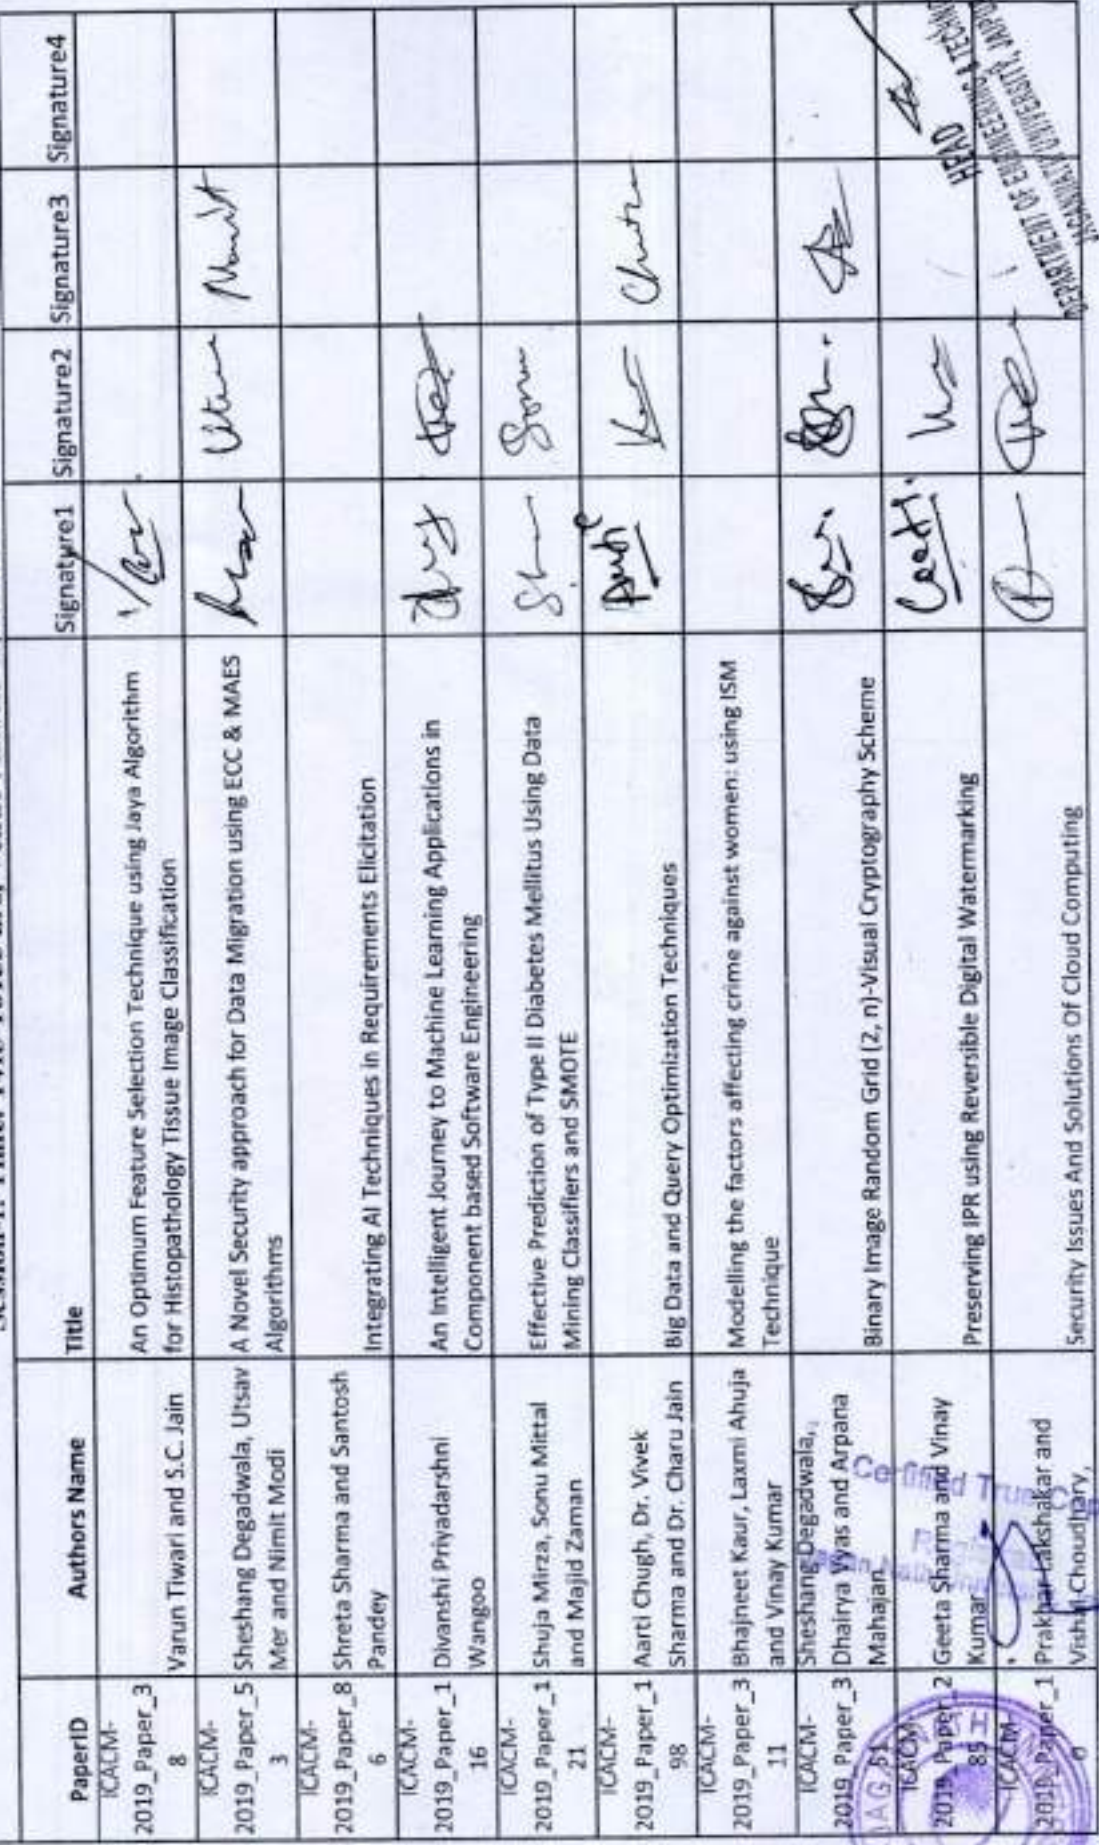 PaperID Authors Name Title Signature1 Signature2 Signature3 Signature4
ICACM-
2019_Paper_3
8
Varun Tiwari and S.C. Jain
An Optimum Feature Selection Technique using Jaya Algorithm
for Histopathology Tissue Image Classification
ICACM-
2019_Paper_5
3
Sheshang Degadwala, Utsav
Mer and Nimit Modi
A Novel Security approach for Data Migration using ECC & MAES
Algorithms
ICACM-
2019_Paper_8
6
Shreta Sharma and Santosh
Pandey
Integrating AI Techniques in Requirements Elicitation
ICACM-
2019_Paper_1
16
Divanshi Priyadarshni
Wangoo
An Intelligent Journey to Machine Learning Applications in
Component based Software Engineering
ICACM-
2019_Paper_1
21
Shuja Mirza, Sonu Mittal
and Majid Zaman
Effective Prediction of Type II Diabetes Mellitus Using Data
Mining Classifiers and SMOTE
ICACM-
2019_Paper_1
98
Aarti Chugh, Dr. Vivek
Sharma and Dr. Charu Jain
Big Data and Query Optimization Techniques
ICACM-
2019_Paper_3
11
Bhajneet Kaur, Laxmi Ahuja
and Vinay Kumar
Modelling the factors affecting crime against women: using ISM
Technique
ICACM-
2019_Paper_3
51
Sheshang Degadwala,,
Dhairya Vyas and Arpana
Mahajan
Binary Image Random Grid (2, n)-Visual Cryptography Scheme
ICACM-
2019_Paper_2
85
Geeta Sharma and Vinay
Kumar
Preserving IPR using Reversible Digital Watermarking
ICACM-
2019_Paper_1
0
Prakhar Lakshakar and
Vishal Choudhary,
Security Issues And Solutions Of Cloud Computing
Certified True
HEAD
DEPARTMENT OF ENGINEERING & TECHN
JAGANNATH UNIVERSITY, JAIPU